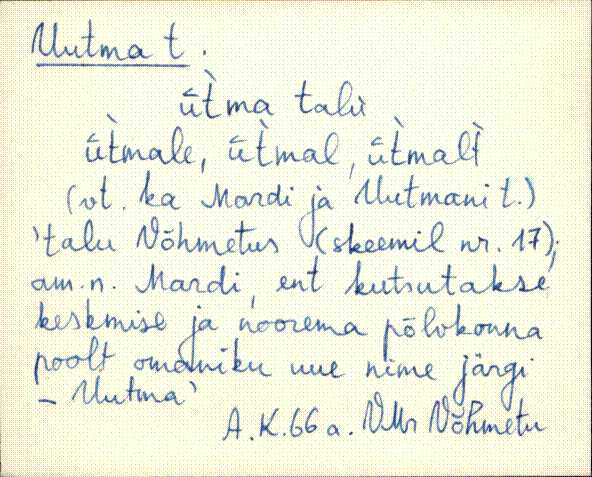 Uutma t.
ūt̀ma talu
ūt̀male, ūt̀mal, ūt̀malt̀
(vt. ka Mardi ja Uutmani t.)
'talu Võhmetus (skeemil nr. 17);
am.n. Mardi, ent kutsutakse
keskmise ja noorema põlvkonna
poolt omaniku uue nime järgi
– Uutma'
A.K.66 a. VMr Võhmetu